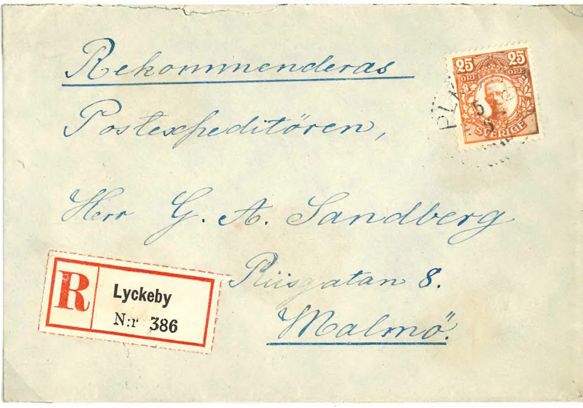 Rekommenderas
25 25
ÖRE ÖRE
SVERIGE
Postexpeditören,
Herr G. A. Sandberg
Riisgatan 8.
Malmö.
R
Lyckeby
N:r 386